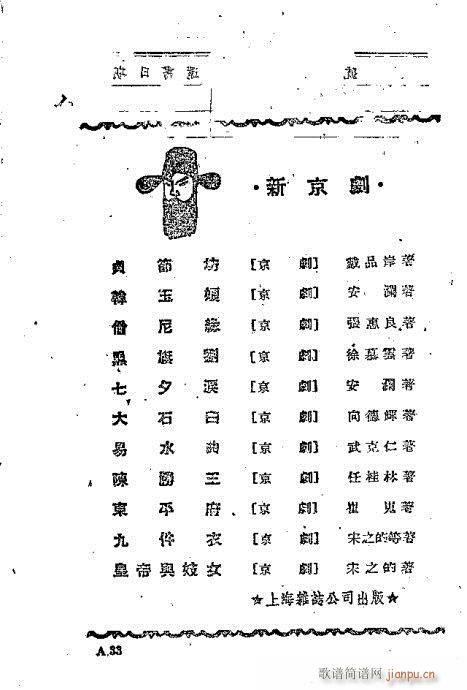 ·新京劇·
貞節坊 [京劇] 戴品岸著
韓玉娘 [京劇] 安瀾著
僧尼緣 [京劇] 張惠良著
黑旗劉 [京劇] 徐慕雲著
七夕淚 [京劇] 安瀾著
大石臼 [京劇] 向德輝著
易水曲 [京劇] 武克仁著
陳勝王 [京劇] 任桂林著
東平府 [京劇] 崔嵬著
九件衣 [京劇] 宋之的等著
皇帝與妓女 [京劇] 宋之的著
★上海雜誌公司出版★
A.33
歌谱简谱网
jianpu.cn